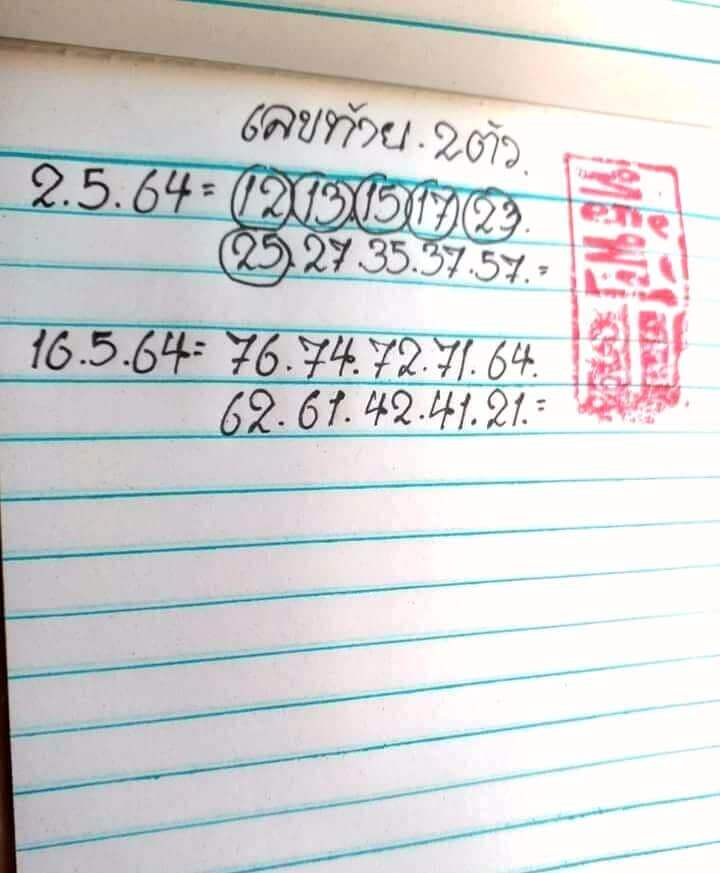 เลขท้าย.2ตัว.
2.5.64= 12 13.15 17 23.
25.27.35.37.57.=
16.5.64= 76.74.72.71.64.
62.61.42.41.21.=